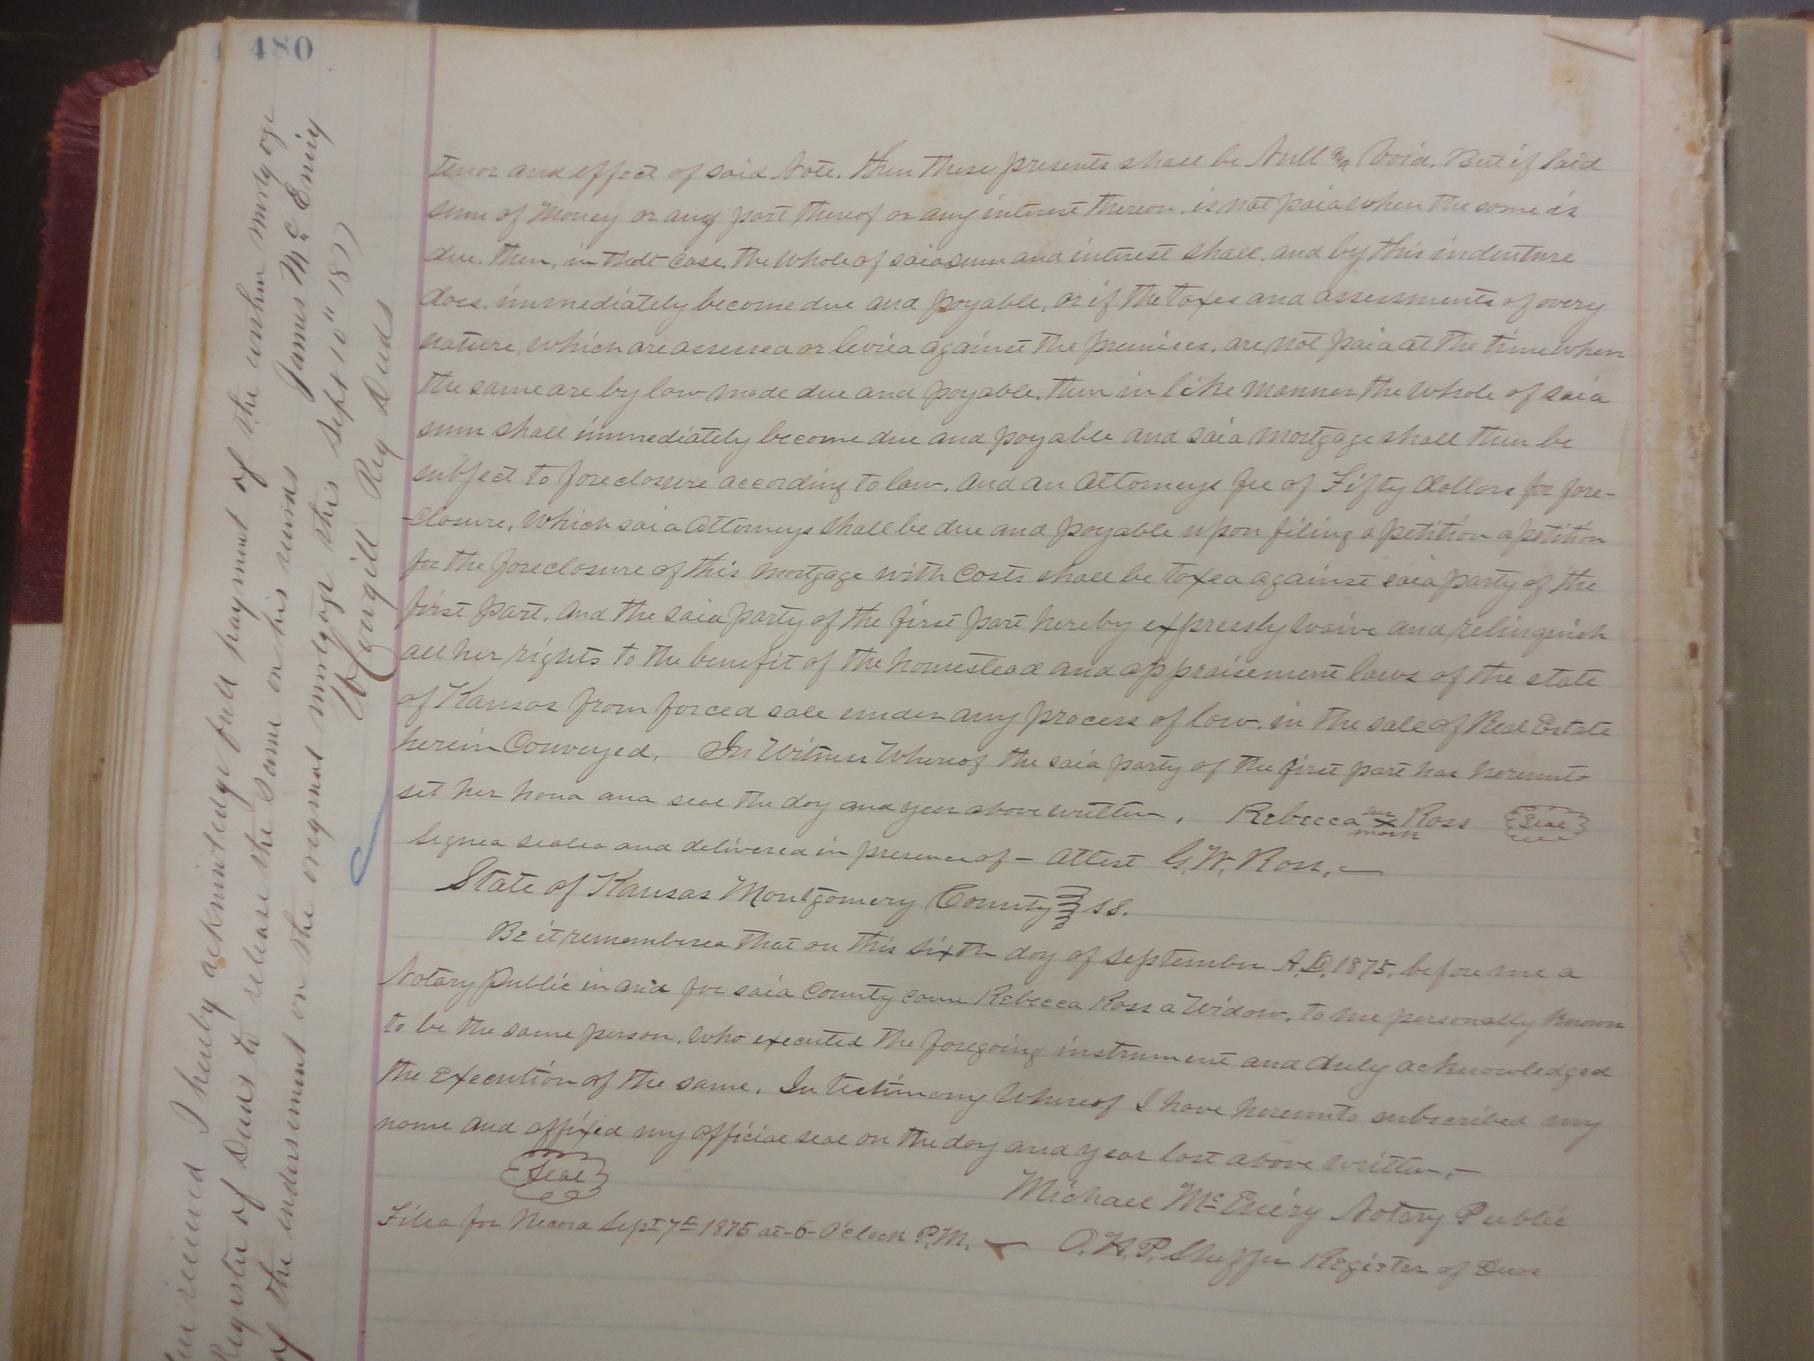 480
tenor and effect of said Note. then these presents shall be Null and Void. But if said
sum of Money or any part thereof or any interest thereon. is not paid when the same is
due. then, in that case, the whole of said sum and interest shall, and by this indenture
does, immediately become due and payable, or if the taxes and assessments of every
nature, which are assessed or levied against the premises, are not paid at the time when
the same are by law made due and payable, then in like manner the whole of said
sum shall immediately become due and payable and said mortgage shall then be
subject to foreclosure according to law. And an Attorneys fee of Fifty dollars for fore-
-closure, Which said Attorneys shall be due and payable upon filing a petition a petition
for the foreclosure of this mortgage with Costs shall be taxed against said party of the
first part. And the said party of the first part hereby expressly waive and relinquish
all her rights to the benefit of the homestead and appraisement laws of the state
of Kansas from forced sale under any process of law, in the sale of Real Estate
herein Conveyed. In Witness Whereof the said party of the first part has hereunto
set her hand and seal the day and year above written. Rebecca her X mark Ross Seal
Signed sealed and delivered in presence of – Attest G. W. Ross. –
State of Kansas Montgomery County } SS.
Be it remembered that on this sixth day of September A.D. 1875. before me a
Notary Public in and for said County came Rebecca Ross a Widow, to me personally known
to be the same person. Who executed the foregoing instrument and duly acknowledged
the Execution of the same. In testimony Whereof I have hereunto subscribed my
name and affixed my official seal on the day and year last above written. –
Seal
Michael McEniry Notary Public
Filed for Record Sept 7th 1875 at 6 O'clock P.M. – O.H.P. Register of Deeds
I hereby acknowledge full payment of the within mortgage
Register of Deeds to release the same on his records James McEniry
of the endorsement on the original mortgage this Sept 10" 1877
Cowgill Reg Deeds